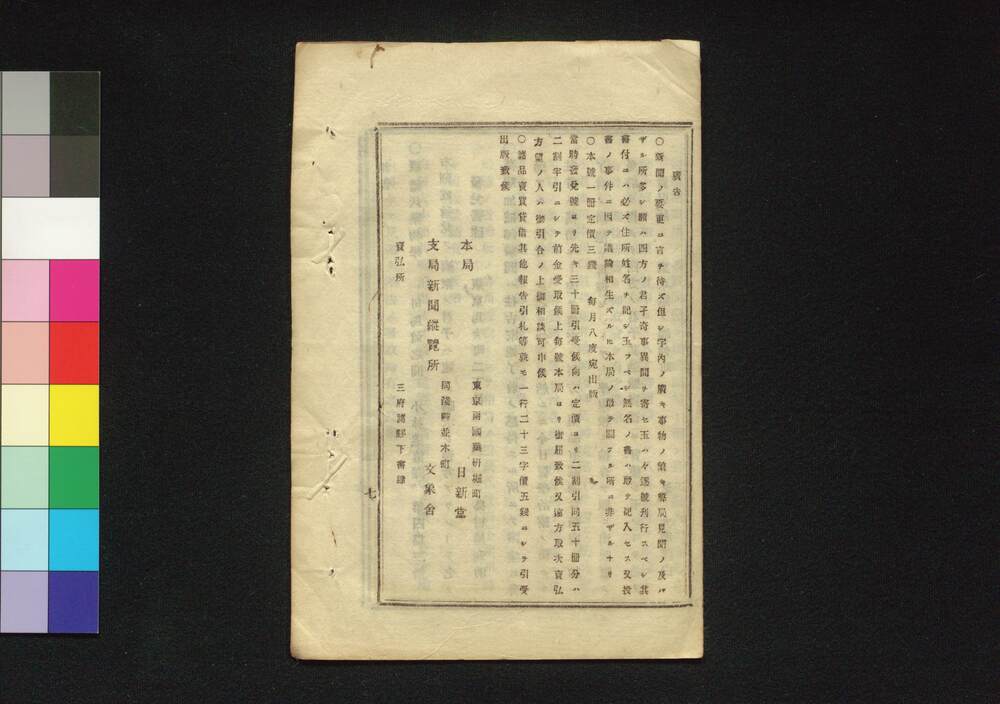 廣告
〇新聞ノ要更ニ言ヲ待ズ但シ宇内ノ廣キ事物ノ繁キ弊局見聞ノ及バ
ザル所多シ願ハ四方ノ君子奇事異聞ヲ寄セ玉ハヾ逐號刊行スベシ其
書付ニハ必ズ住所姓名ヲ記シ玉フベシ無名ノ書ハ敢テ記入セス又投
書ノ事件ニ因テ議論相生ズルモ本局ノ敢テ關スル所ニ非ザルナリ
〇本號一冊定價三錢 毎月八度宛出版
當時發兌號ヨリ先キ三十冊引受候向ハ定價ヨリ二割引同五十冊分ハ
二割半引ニシテ前金受取候上毎號本局ヨリ御届致候又遠方取次賣弘
方望ノ人ハ御引合ノ上御相談可申候
〇諸品賣買貸借其他報告引札等衆モ一行二十三字價五錢ニシテ引受
出版致候
本局 東京兩國藥研堀町 日新堂
支局新聞縦覽所 並木町 文象舍
賣弘所 三府諸縣下書肆
七